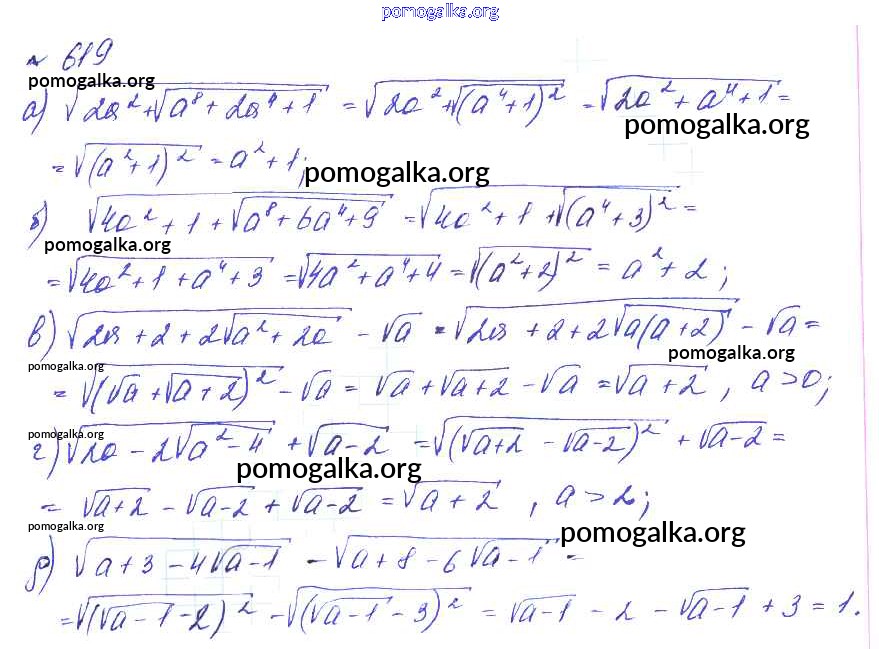 pomogalka.org
№ 619
pomogalka.org
а) √(2a² + √(a⁸ + 2a⁴ + 1)) = √(2a² + √((a⁴ + 1)²)) = √(2a² + a⁴ + 1) =
pomogalka.org
= √((a² + 1)²) = a² + 1;
pomogalka.org
б) √(4a² + 1 + √(a⁸ + 6a⁴ + 9)) = √(4a² + 1 + √((a⁴ + 3)²)) =
pomogalka.org
= √(4a² + 1 + a⁴ + 3) = √(4a² + a⁴ + 4) = √((a² + 2)²) = a² + 2;
в) √(2a + 2 + 2√(a² + 2a)) - √a = √(2a + 2 + 2√(a(a + 2))) - √a =
pomogalka.org
pomogalka.org
= √((√a + √(a + 2))²) - √a = √a + √(a + 2) - √a = √(a + 2), a > 0;
pomogalka.org
г) √(2a - 2√(a² - 4)) + √(a - 2) = √((√(a + 2) - √(a - 2))²) + √(a - 2) =
pomogalka.org
= √(a + 2) - √(a - 2) + √(a - 2) = √(a + 2), a > 2;
pomogalka.org
pomogalka.org
д) √(a + 3 - 4√(a - 1)) - √(a + 8 - 6√(a - 1)) =
= √((√(a - 1) - 2)²) - √((√(a - 1) - 3)²) = √(a - 1) - 2 - √(a - 1) + 3 = 1.